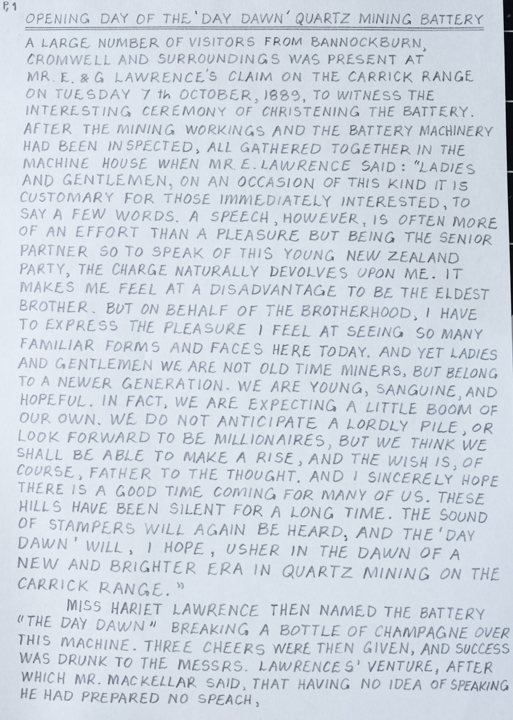 P,1
OPENING DAY OF THE 'DAY DAWN' QUARTZ MINING BATTERY
A LARGE NUMBER OF VISITORS FROM BANNOCKBURN,
CROMWELL AND SURROUNDINGS WAS PRESENT AT
MR. E. & G LAWRENCE'S CLAIM ON THE CARRICK RANGE
ON TUESDAY 7th OCTOBER, 1889, TO WITNESS THE
INTERESTING CEREMONY OF CHRISTENING THE BATTERY.
AFTER THE MINING WORKINGS AND THE BATTERY MACHINERY
HAD BEEN INSPECTED, ALL GATHERED TOGETHER IN THE
MACHINE HOUSE WHEN MR E. LAWRENCE SAID: "LADIES
AND GENTLEMEN, ON AN OCCASION OF THIS KIND IT IS
CUSTOMARY FOR THOSE IMMEDIATELY INTERESTED, TO
SAY A FEW WORDS. A SPEECH, HOWEVER, IS OFTEN MORE
OF AN EFFORT THAN A PLEASURE BUT BEING THE SENIOR
PARTNER SO TO SPEAK OF THIS YOUNG NEW ZEALAND
PARTY, THE CHARGE NATURALLY DEVOLVES UPON ME. IT
MAKES ME FEEL AT A DISADVANTAGE TO BE THE ELDEST
BROTHER. BUT ON BEHALF OF THE BROTHERHOOD, I HAVE
TO EXPRESS THE PLEASURE I FEEL AT SEEING SO MANY
FAMILIAR FORMS AND FACES HERE TODAY. AND YET LADIES
AND GENTLEMEN WE ARE NOT OLD TIME MINERS, BUT BELONG
TO A NEWER GENERATION. WE ARE YOUNG, SANGUINE, AND
HOPEFUL. IN FACT, WE ARE EXPECTING A LITTLE BOOM OF
OUR OWN. WE DO NOT ANTICIPATE A LORDLY PILE, OR
LOOK FORWARD TO BE MILLIONAIRES, BUT WE THINK WE
SHALL BE ABLE TO MAKE A RISE, AND THE WISH IS, OF
COURSE, FATHER TO THE THOUGHT. AND I SINCERELY HOPE
THERE IS A GOOD TIME COMING FOR MANY OF US. THESE
HILLS HAVE BEEN SILENT FOR A LONG TIME. THE SOUND
OF STAMPERS WILL AGAIN BE HEARD, AND THE 'DAY
DAWN' WILL, I HOPE, USHER IN THE DAWN OF A
NEW AND BRIGHTER ERA IN QUARTZ MINING ON THE
CARRICK RANGE."
MISS HARIET LAWRENCE THEN NAMED THE BATTERY
"THE DAY DAWN" BREAKING A BOTTLE OF CHAMPAGNE OVER
THIS MACHINE. THREE CHEERS WERE THEN GIVEN, AND SUCCESS
WAS DRUNK TO THE MESSRS. LAWRENCES' VENTURE, AFTER
WHICH MR. MACKELLAR SAID, THAT HAVING NO IDEA OF SPEAKING
HE HAD PREPARED NO SPEACH,